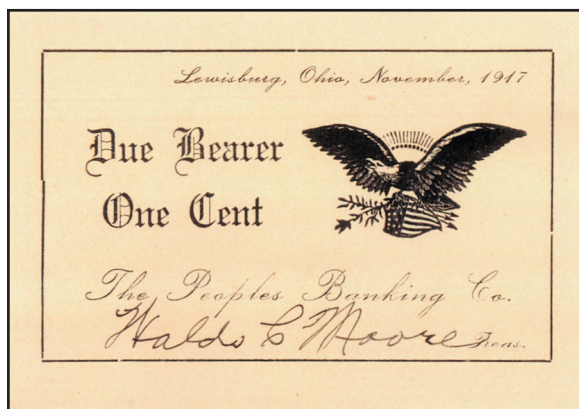 Lewisburg, Ohio, November, 1917
Due Bearer
One Cent
The Peoples Banking Co.
Waldo C Moore Treas.